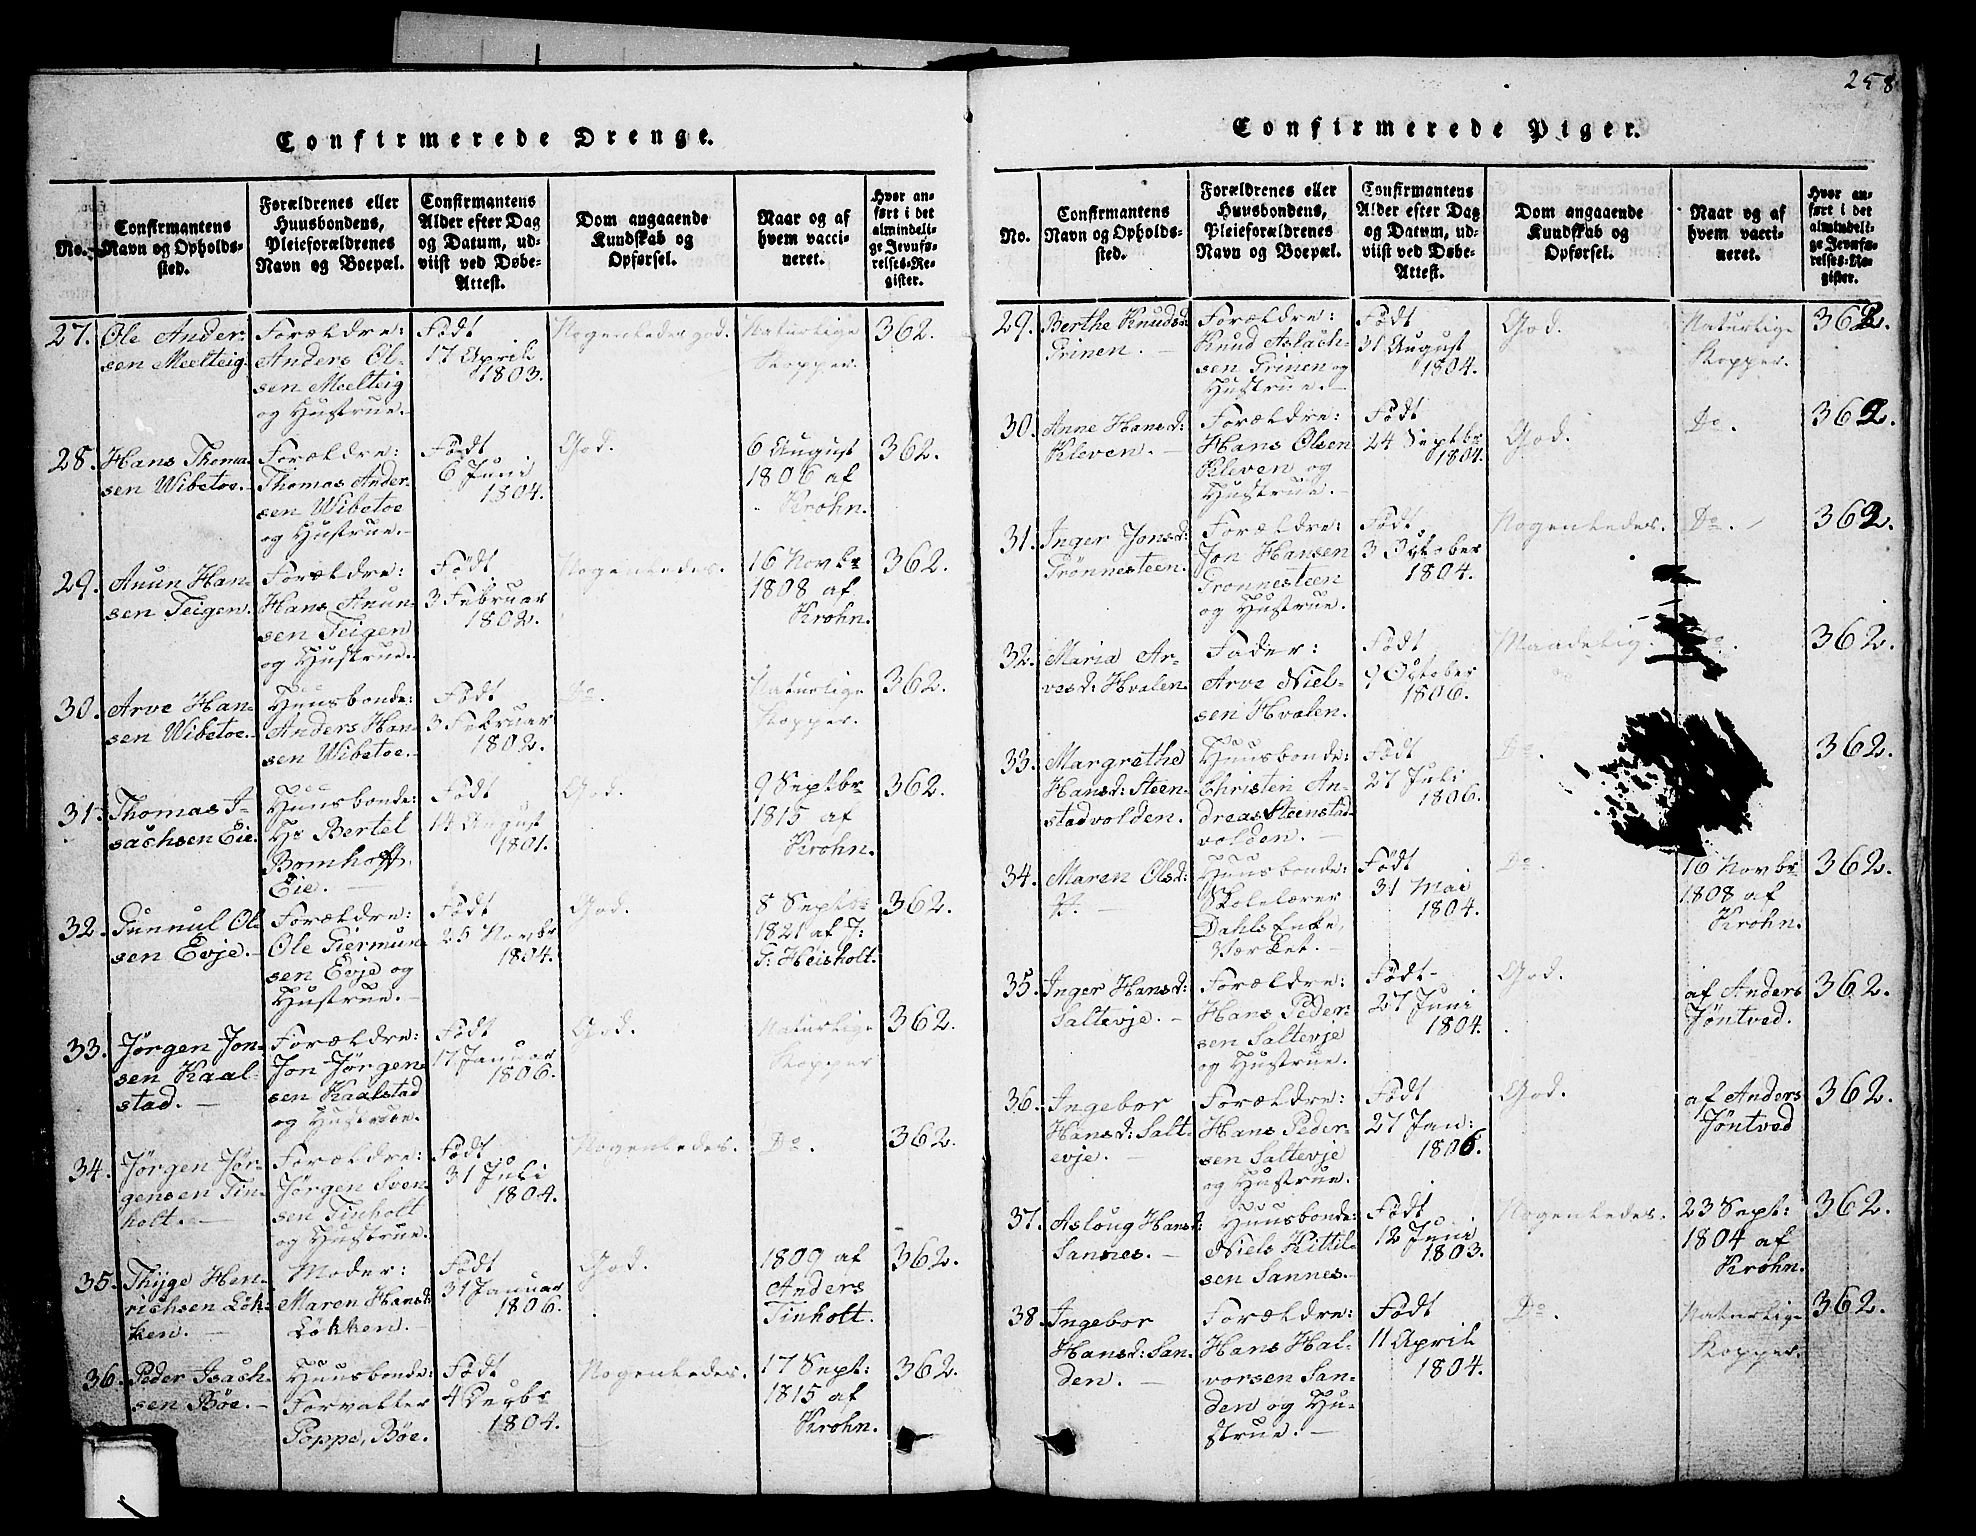 258
Confirmerede Drenge.
No.
Confirmantens
Navn og Opholds-
sted.
Forældrenes eller
Huusbondens,
Pleieforældrenes
Navn og Boepæl.
Confirmantens
Alder efter Dag
og Datum, ud-
viist ved Døbe-
Attest.
Dom angaaende
Kundskab og
Opførsel.
Naar og af
hvem vacci-
neret.
Hvor an-
ført i det
almindeli-
ge Jevnfø-
relses-Re-
gister.
27.
Ole Ander-
sen Meelteig.
Forældre:
Anders Ol-
sen Meelteig
og Hustrue.-
Født
17 April
1803.
Nogenledes god.
Naturlige
Kopper.
362.
28.
Hans Thoma-
sen Wibetoe.-
Forældre:
Thomas Ander-
sen Wibetoe
og Hustrue.-
Født
6 Juni
1804.
God.
6 August
1806 af
Krohn.
362.
29.
Anun Han-
sen Teigen.
Forældre:
Hans Anun-
sen Teigen
og Hustrue.-
Født
3 Februar
1802.
Nogenledes.
16 Novbr
1808 af
Krohn.
362.
30.
Arve Han-
sen Wibetoe.
Huusbonde:
Anders Han-
sen Wibetoe.-
Født
3 Februar
1802.
Do.
Naturlige
Kopper.
362.
31.
Thomas I-
sachsen Eie.
Huusbonde:
Hr Bertel
Bomhoff,
Eie. -
Født
14 August
1801.
God.
9 Septbr
1815 af
Krohn.
362.
32.
Gunnul Ol-
sen Evje.-
Forældre:
Ole Giermun-
sen Evje og
Hustrue.-
Født
25 Novbr
1804.
God.
8 Septbr
1821 af J:
G: Heisholt.
362.
33.
Jørgen Jon-
sen Kaal-
stad. -
Forældre:
Jon Jørgen-
sen Kaalstad
og Hustrue.
Født
17 Januar
1806.
God.
Naturlige
Kopper
362.
34.
Jørgen Jør-
gensen Tin-
holt. -
Forældre:
Jørgen Sven-
sen Tinholt
og Hustrue.
Født
31 Juli
1804.
Nogenledes.
Do.
362.
35.
Thyge Hen-
richsen Løk-
ken. -
Moder:
Maren Hansd:
Løkken.-
Født
31 Januar
1806.
God.
1809 af
Anders
Tinholt.
362.
36.
Peder Isach-
sen Bøe.-
Huusbonde:
Forvalter
Poppe, Bøe.
Født
4 Decbr
1804.
Nogenledes.
17 Sept:
1815 af
Krohn.
362.
Confirmerede Piger.
No.
Confirmantens
Navn og Opholds-
sted.
Forældrenes eller
Huusbondens,
Pleieforældrenes
Navn og Boepæl.
Confirmantens
Alder efter Dag
og Datum, ud-
viist ved Døbe-
Attest.
Dom angaaende
Kundskab og
Opførsel.
Naar og af
hvem vacci-
neret.
Hvor an-
ført i det
almindeli-
ge Jevnfø-
relses-Re-
gister.
29.
Berthe Knudsd:
Grinen. -
Forældre:
Knud Aslach-
sen Grinen og
Hustrue.-
Født
31 August
1804.
God.
Naturlige
Kopper.
362.
30.
Anne Hansd:
Kleven. -
Forældre:
Hans Olsen
Kleven og
Hustrue.-
Født
24 Septbr
1804.
God.
Do.
362.
31.
Inger Jonsd:
Grønnesteen.
Forældre:
Jon Hansen
Grønnesteen
og Hustrue.
Født
3 October
1804.
Nogenledes.
Do.
362.
32.
Maria Ar-
vesd: Hvalen.
Fader:
Arve Niel-
sen Hvalen.
Født
9 October
1806.
Maadelig.
Do.
362.
33.
Margrethe
Hansd: Steen-
stadvolden.
Huusbonde:
Christen An-
dreas Steenstad-
volden. -
Født
27 Juli
1806.
Do.
362.
34.
Maren Olsd:
Huusbonde:
Skolelærer
Dahls Enke,
Værket.-
Født
31 Mai
1804.
Do.
16 Novbr
1808 af
Krohn.
362.
35.
Inger Hansd:
Saltevje. -
Forældre:
Hans Peder-
sen Saltevje
og Hustrue.
Født
27 Juni
1804.
God.
af Anders
Jøntved.
362.
36.
Ingebor
Hansd: Salt-
evje. -
Forældre:
Hans Peder-
sen Saltevje
og Hustrue.
Født
27 Jan:
1806.
God.
af Anders
Jøntved
362.
37.
Asloug Hansd:
Sannes. -
Huusbonde:
Niels Kittil-
sen Sannes.-
Født
12 Juni
1803.
Nogenledes.
23 Sept:
1804 af
Krohn.
362.
38.
Ingebor
Hansd: San-
den. -
Forældre:
Hans Hal-
vorsen San-
den og Hu-
strue.-
Født
11 April
1804.
Do.
Naturlige
Kopper.
362.